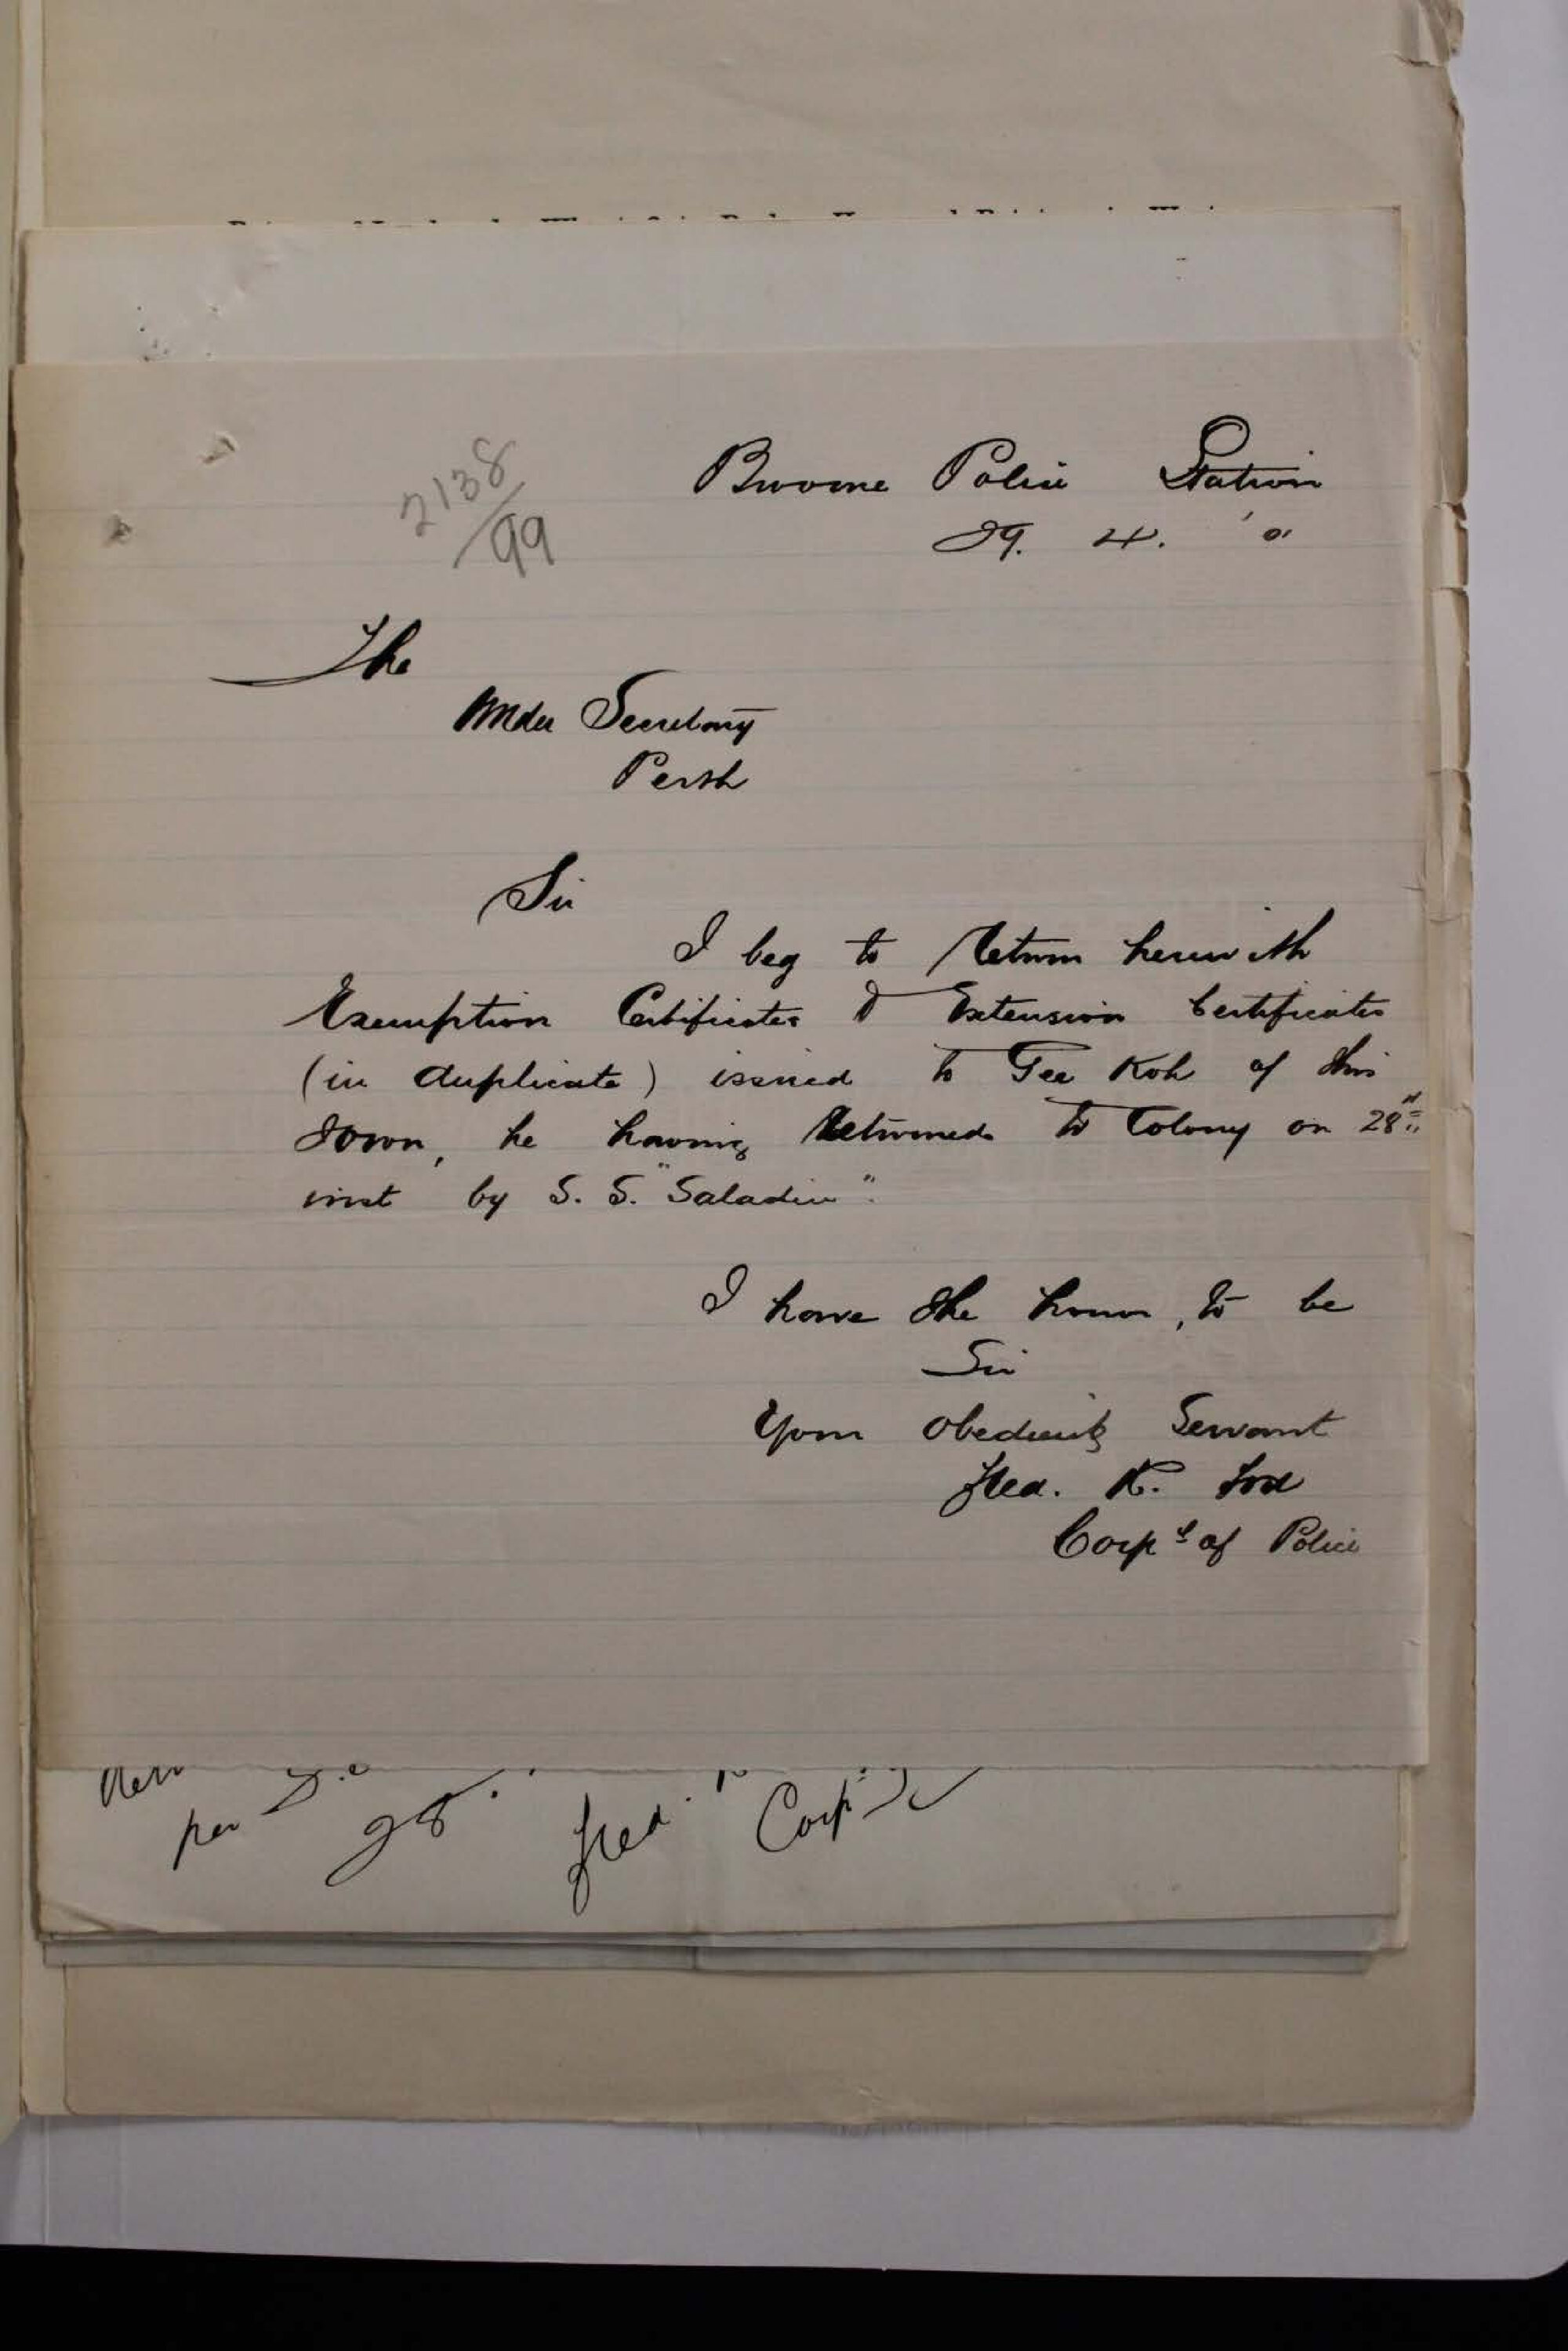 2138
/99
Broome Police Station
29. 4. '01
The
Under Secretary
Perth
Sir
I beg to Return herewith
Exemption Certificates & Extension Certificates
(in duplicate) issued to Gee Koh of this
Town, he having Returned to Colony on 28th
inst by S. S. "Saladin".
I have the honor, to be
Sir
Your Obedient Servant
Fred. K. Ford
Corpl of Police
per
28.
Fred.
Corpl